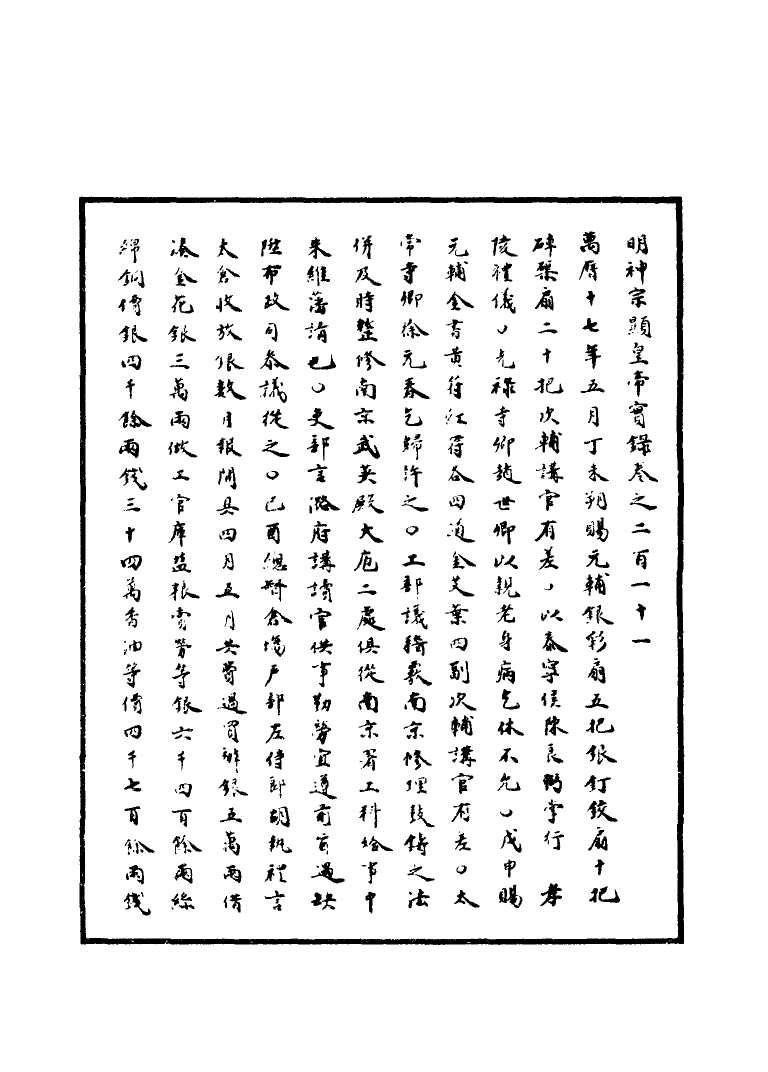 明神宗顯皇帝實錄卷之二百一十一
萬曆十七年五月丁未朔賜元輔銀彩扇五把銀釘鉸扇十把
碎槩扇二十把次輔講官有差○以泰寧侯陳良弼掌行 孝
陵禮儀○光祿寺卿趙世卿以親老身病乞休不允○戊申賜
元輔金書黃符江符各四道金艾葉四副次輔講官有差○太
常寺卿徐元春乞歸許之○工部議稱裁南京修理鼓鑄之法
併及時整修南京武英殿大庖二處俱從南京署工科給事中
朱維藩請也○吏部言潞府講讀官供事勤勞宜遵前旨遇缺
陞布政司參議從之○己酉總督倉場戶部左侍郎胡執禮言
太倉收放銀數月報開具四月五月共費過買辦銀五萬兩借
湊金花銀三萬兩做工官庫監粮賞勞等銀六千四百餘兩絲
綿銅價銀四千餘兩錢三十四萬香油等價四千七百餘兩錢